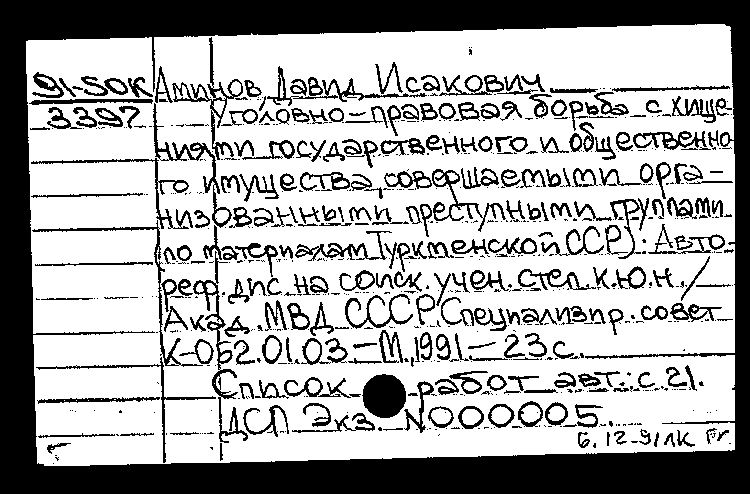 91-5OK Аминов, Давид Исакович.
3397 Уголовно-правовая борьба с хище-
ниями государственного и общественно-
го имущества, совершаемыми орга-
низованными преступными группами
(по материалам Туркменской ССР): Авто-
реф. дис. на соиск. учен. степ. к.ю.н./
Акад. МВД СССР. Специализир. совет
К-052.01.03 - М., 1991. - 23 с.
Список работ авт.: с. 21.
ДСП Экз. N000005.
6.12-91